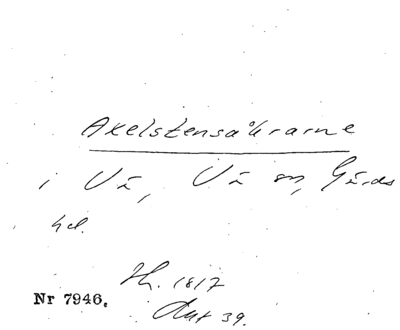 Axelstensåkrarne
i Vä, Vä sn, Gärds
hd.
Th. 1817
Nr 7946.
Akt 39.